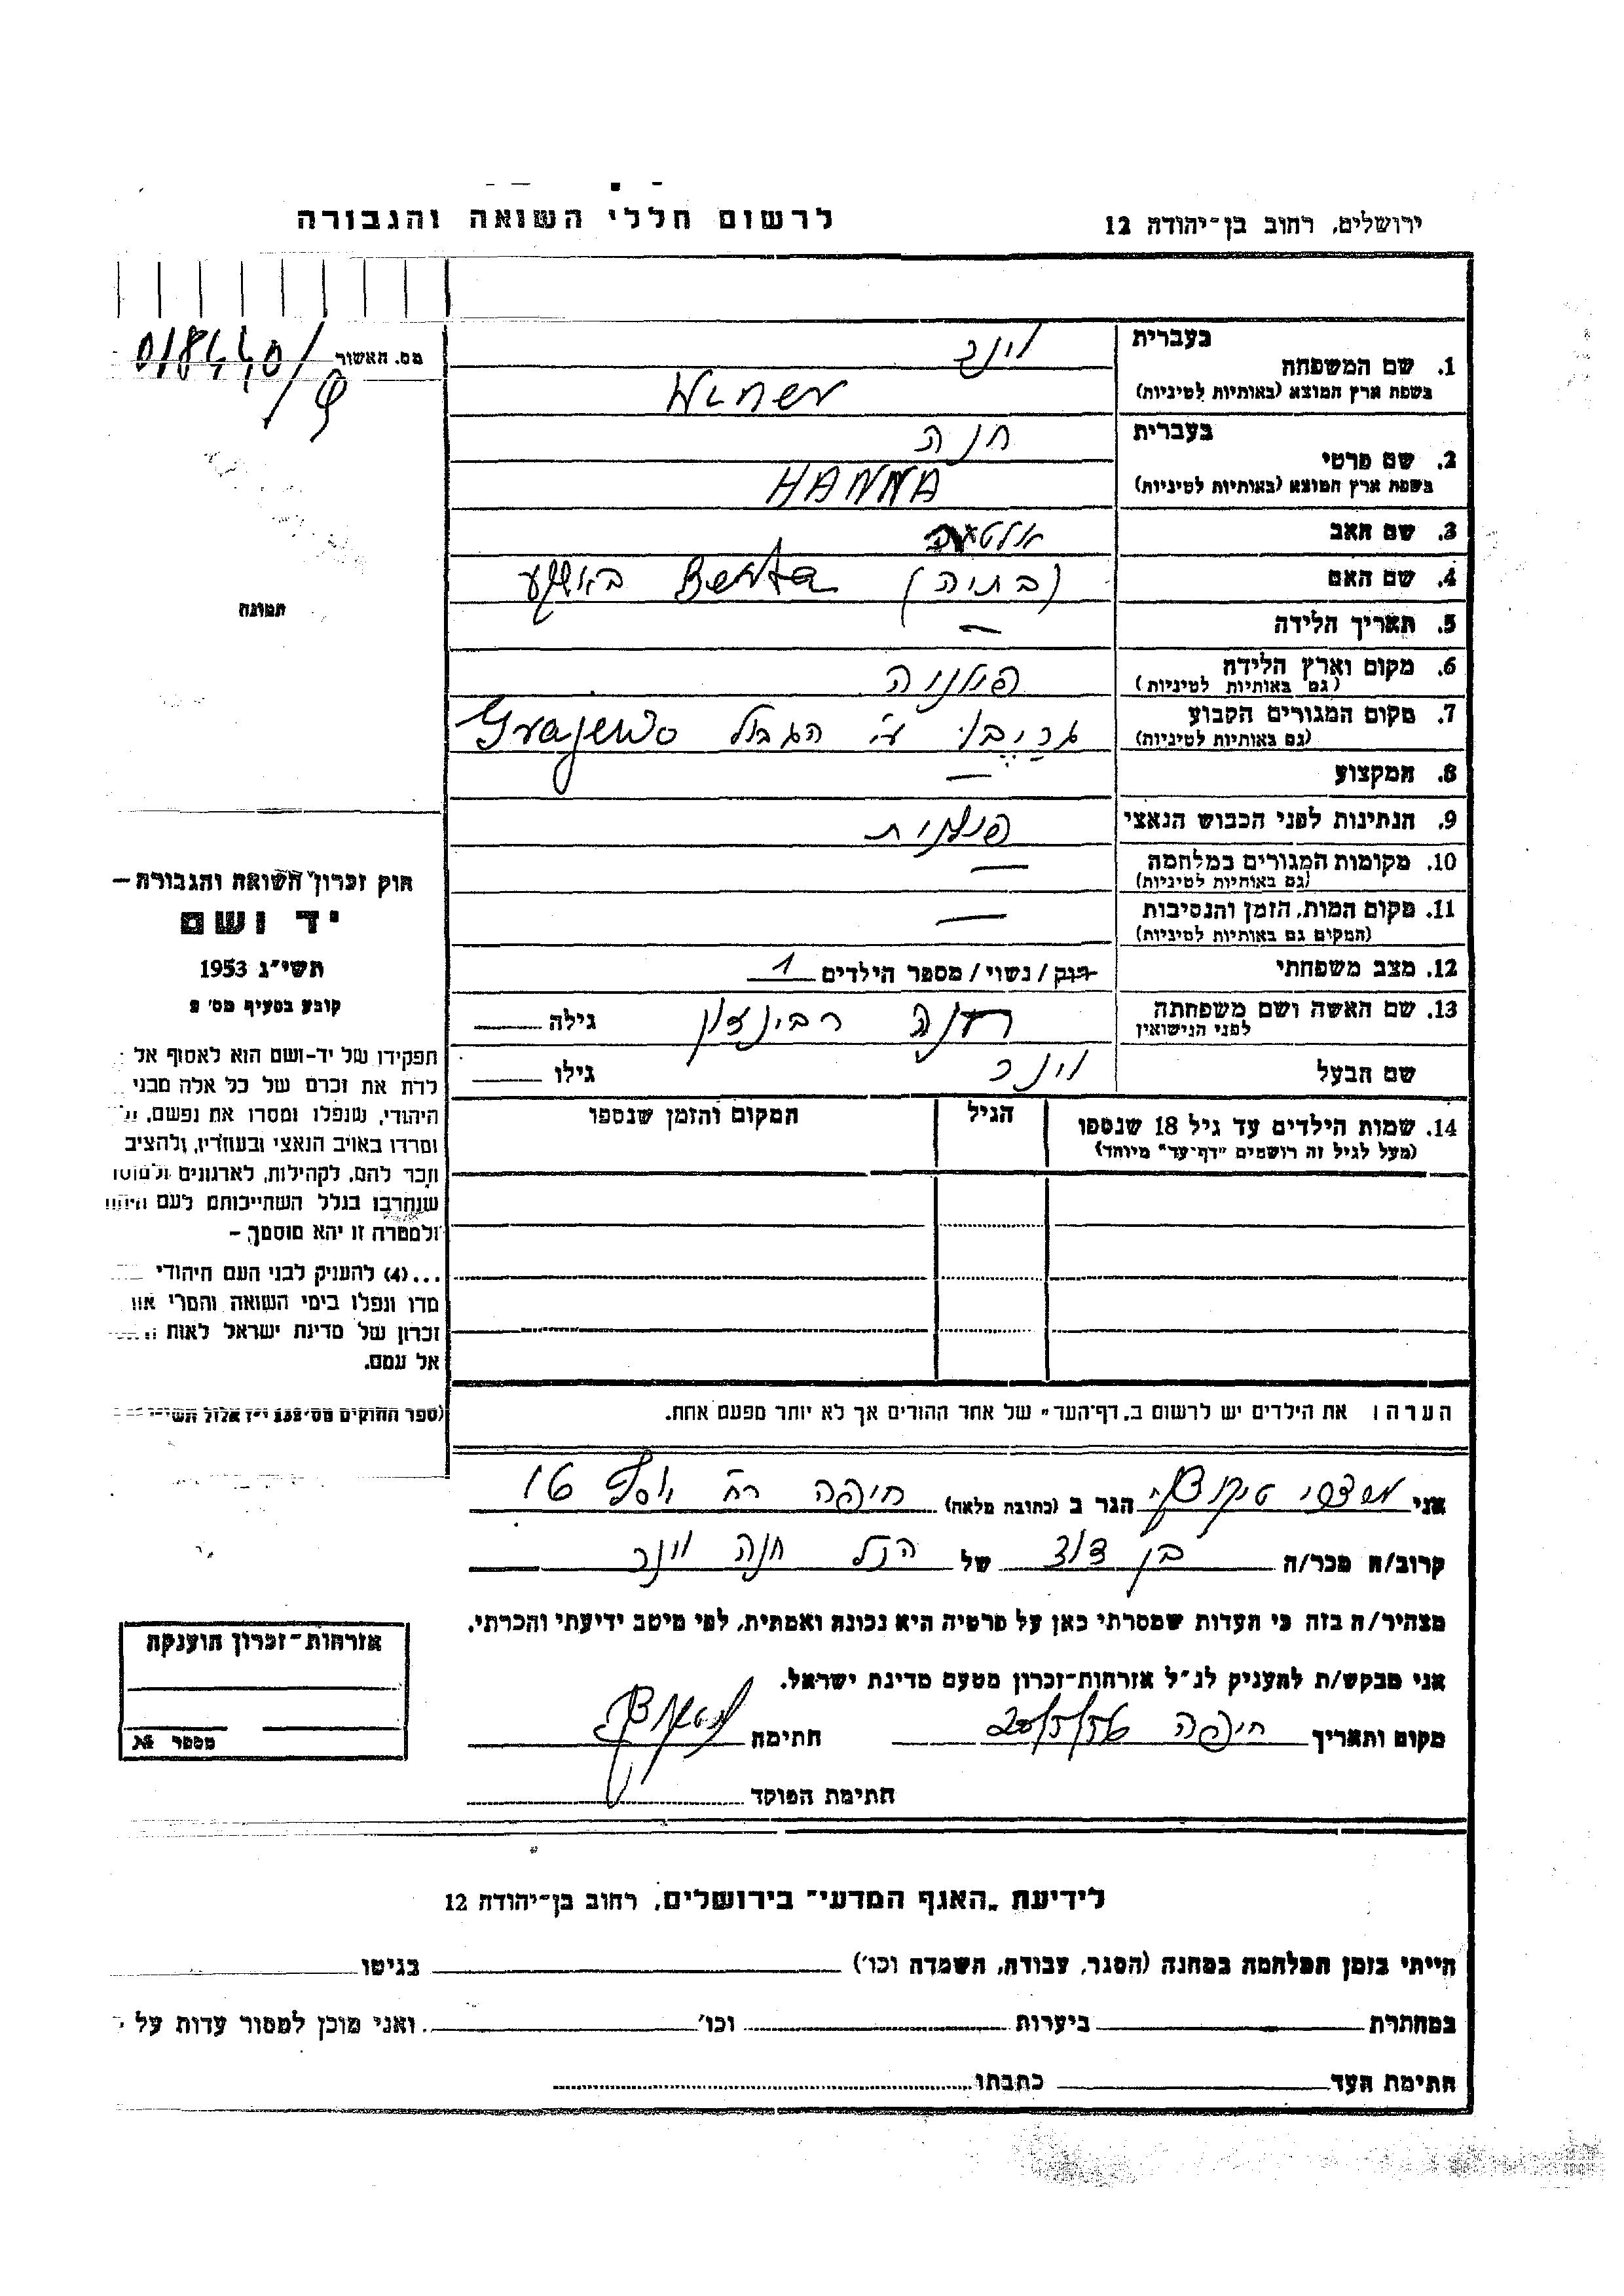 ירושלים, רחוב בן-יהודה 12
לרשום חללי השואה והגבורה
מס. האשור
בעברית
וינר
1. שם המשפחה
בשפת ארץ המוצא (באותיות לטיניות)
Winer
בעברית
חנה
2. שם פרטי
בשפת ארץ המוצא (באותיות לטיניות)
HANNA
3. שם האב
4. שם האם (בתיה) Berta
5. תאריך הלידה —
6. מקום וארץ הלידה פולניה
(גם באותיות לטיניות)
7. מקום המגורים הקבוע הגבול Grajewo
(גם באותיות לטיניות)
8. המקצוע —
9. הנתינות לפני הכבוש הנאצי פולנית
10. מקומות המגורים במלחמה —
(גם באותיות לטיניות)
11. מקום המות, הזמן והנסיבות —
(המקום גם באותיות לטיניות)
12. מצב משפחתי רווק / נשוי / מספר הילדים 1
13. שם האשה ושם משפחתה חנה רבינזון גילה
לפני הנישואין
שם הבעל וינר גילו
14. שמות הילדים עד גיל 18 שנספו הגיל המקום והזמן שנספו
(מעל לגיל זה רושמים "דף-עד" מיוחד)
הערה: את הילדים יש לרשום ב„דף-העד" של אחד ההורים אך לא יותר מפעם אחת.
אני הגר ב (כתובת מלאה) חיפה רח' יוסף
קרוב/ה מכר/ה בן דוד של הנ"ל חנה וינר
מצהיר/ה בזה כי העדות שמסרתי כאן על פרטיה היא נכונה ואמתית, לפי מיטב ידיעתי והכרתי.
אני מבקש/ת להעניק לנ"ל אזרחות-זכרון מטעם מדינת ישראל.
מקום ותאריך חיפה חתימה
חתימת הפוקד
תמונה
חוק זכרון השואה והגבורה –
יד ושם
תשי"ג 1953
קובע בסעיף מס' 2
תפקידו של יד-ושם הוא לאסוף אל
לדת את זכרם של כל אלה מבני
היהודי, שנפלו ומסרו את נפשם,
ומרדו באויב הנאצי ובעוזריו, ולהציב
וזכר להם, לקהילות, לארגונים ולמוסו
שנחרבו בגלל השתייכותם לעם היהו
ולמטרה זו יהא מוסמך –
...(4) להעניק לבני העם היהודי
מדו ונפלו בימי השואה והמרי
זכרון של מדינת ישראל לאות
אל עמם.
(ספר החוקים מס' 132 י"ז אלול תשי"
אזרחות-זכרון הוענקה
מספר
לידיעת „האגף המדעי" בירושלים, רחוב בן-יהודה 12
הייתי בזמן המלחמה במחנה (הסגר, עבודה, השמדה וכו') בגיטו
במחתרת ביערות וכו' ואני מוכן למסור עדות על
חתימת העד כתבתו